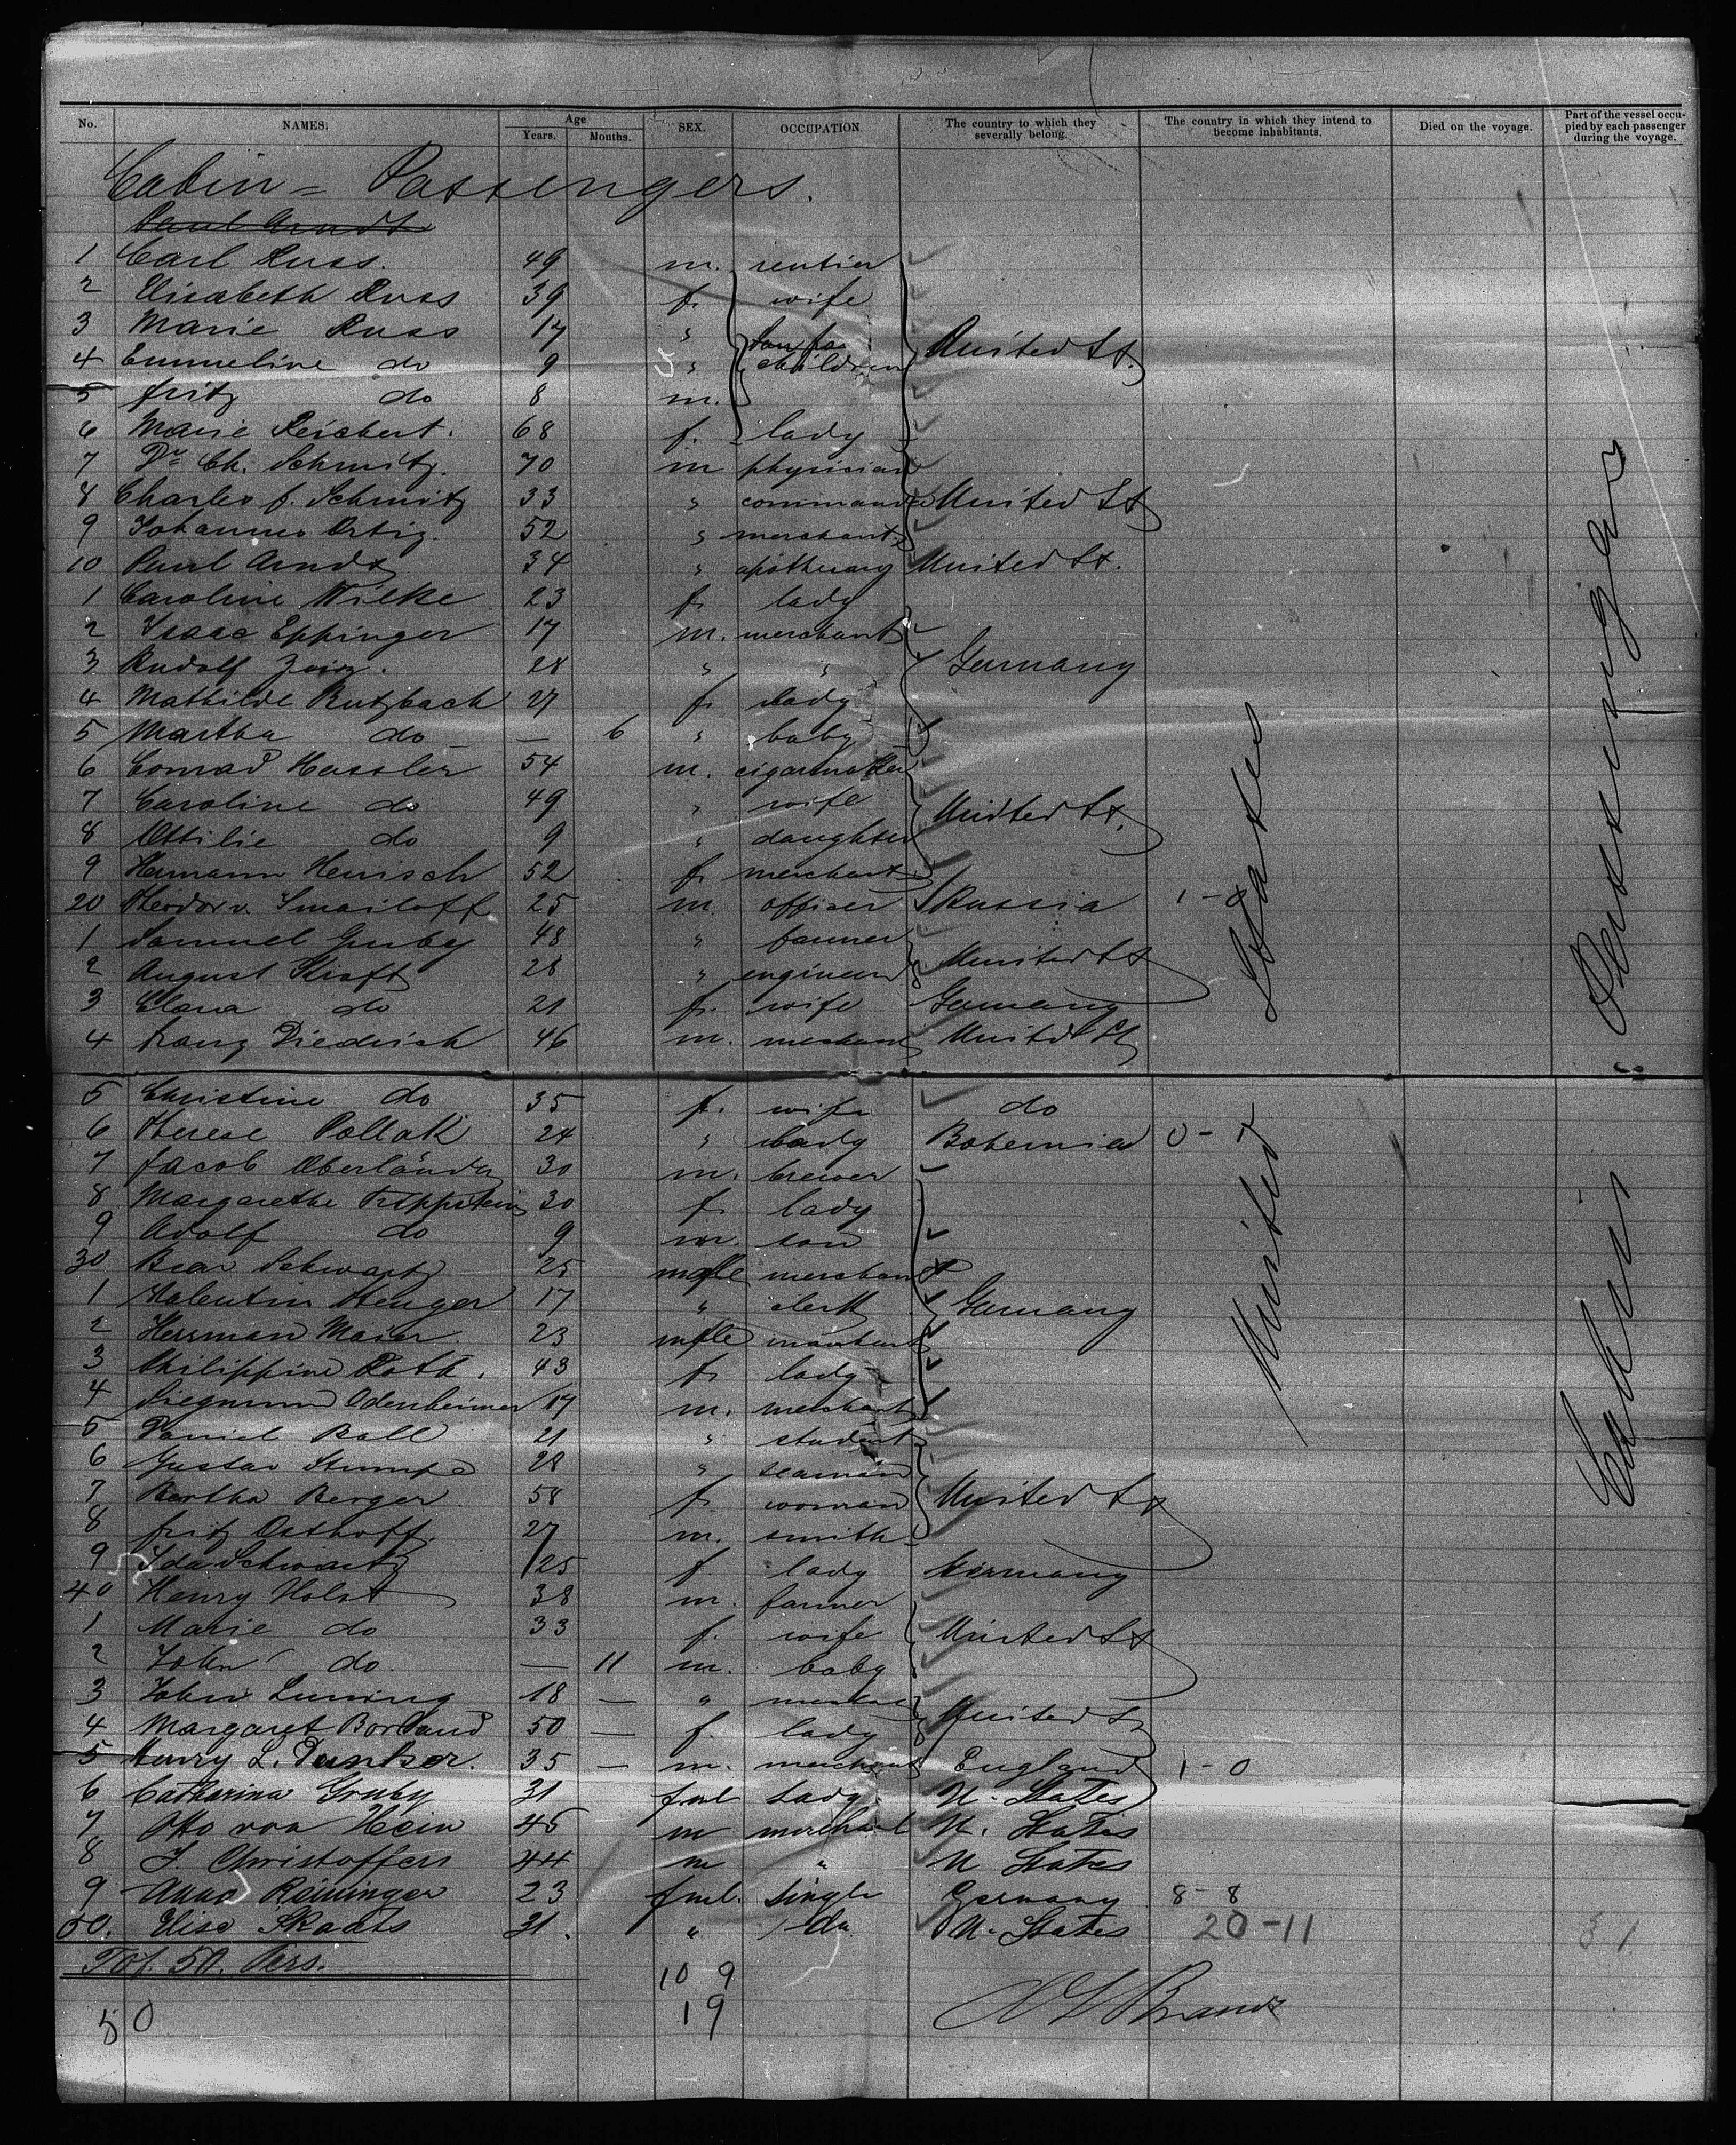 No. NAMES. Age Years. Months. SEX. OCCUPATION. The country to which they severally belong. The country in which they intend to become inhabitants. Died on the voyage. Part of the vessel occupied by each passenger during the voyage.
Cabin = Passengers.
Paul Arndt
1 Carl Russ. 49 m. rentier
2 Elisabeth Russ 39 f. wife
3 Marie Russ 17 "
4 Emmeline do 9 " children United St.
5 Fritz do 8 m.
6 Marie Reichert. 68 f. lady
7 Dr Ch. Schmitz. 70 m physician
8 Charles F. Schmitz 33 " United St
9 Johannes 52 " merchant
10 Paul Arndt 34 " apothecary United St.
1 Caroline Wilke 23 f. lady
2 Isaac Eppinger 17 m. merchant
3 Rudolf 28 " " Germany
4 Mathilde Butzbach 27 f. lady
5 Martha do — 6 " baby
6 Conrad Hassler 54 m. cigarmaker
7 Caroline do 49 " wife United St.
8 Ottilie do 9 " daughter
9 Hermann Henisch 52 f. merchant
20 Theodor v. Smailoff 25 m. officer Russia 1 - 0
1 Samuel Gruby 48 " farmer
2 August Kraft 28 " engineer United St
3 Clara do 21 f. wife Germany
4 Franz Diedrich 46 m. merchant United St
5 Christine do 35 f. wife do
6 Therese Pollak 24 " lady Bohemia 0 - 1
7 Jacob Oberländer 30 m. brewer
8 Margarethe Trippstein 30 f. lady
9 Adolf do 9 m. son
30 Bear Schwartz 25 male merchant
1 Valentin Stenger 17 " clerk Germany
2 Herrman Maier. 23 male merchant
3 Philippine Roth. 43 f. lady
4 Siegmund Odenheimer 17 m. merchant
5 Daniel Ball 21 " student
6 Gustav Stumpe 28 " seaman
7 Bertha Berger 58 f. woman United St
8 Fritz Osthoff 27 m. smith
9 Ida Schwartz 25 f. lady Germany
40 Henry Holst 38 m. farmer
1 Marie do 33 f. wife United St
2 John do. — 11 m. baby
3 John Luning 18 — " United St
4 Margaret Borland 50 — f. lady
5 Henry L. 35 — m. merchant England 1 - 0
6 Catharina Gruby 31 fml lady U. States
7 Otto von Hein 45 m merchant U. States
8 J. Christoffers 44 m " U States
9 Anna Reininger 23 fml. single Germany 8 - 8
50. Elise Skaats 31. " do. U. States 20 - 11 31
Tot. 50. Pers.
10 9
50 19
United States
Cabin: Passengers